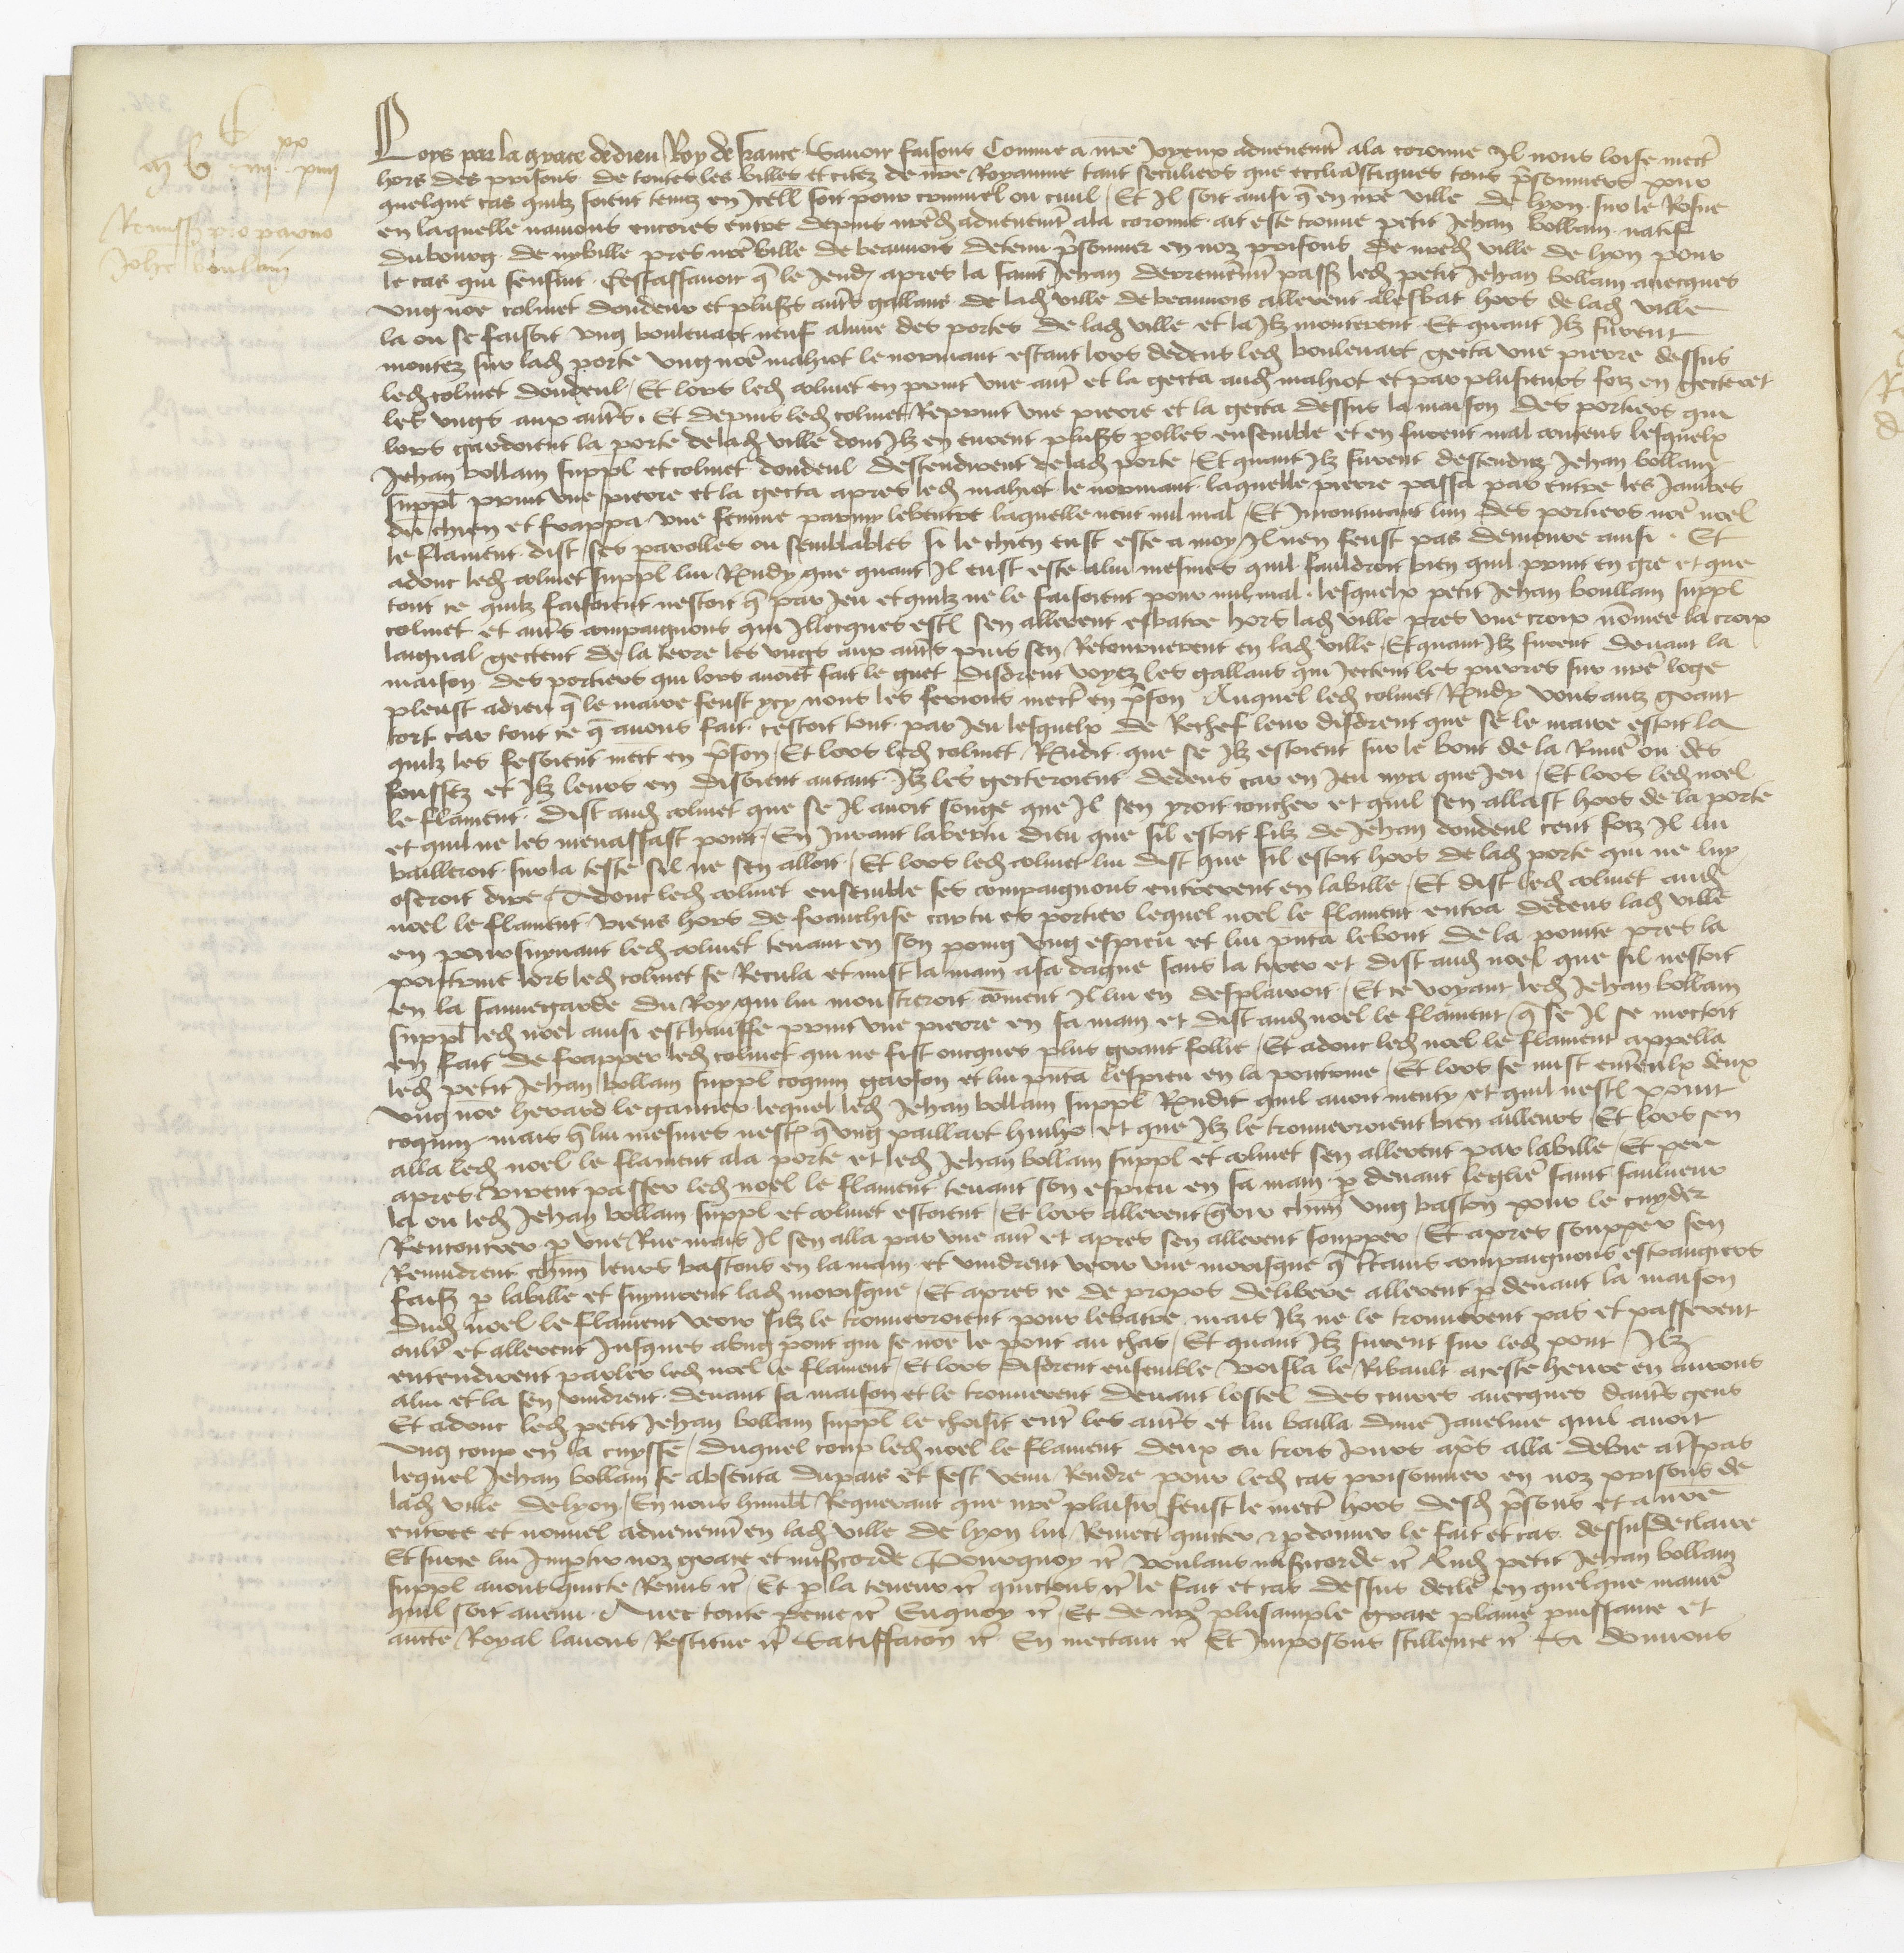 Remissio pro parvo
Johe boulam
Loys par la grace de dieu Roy de france Savoir faisons Comme a nre Joyeux advenement ala coronne Il nous loise mectre
hors des prisons de toutes les villes et citez de nre Royaume tant seculiers que eccliastiques tous prisonniers pour
quelque cas quilz soient tenuz en Icelle soit pour criminel ou civil Et Il soit ainsi q en nre ville de lyon sur le Rosne
en laquelle navions encores entre depuis nred advenement ala coronne ait este trouve petit Jehan bollam natif
du bourg de pres nre ville de beauvois detenu prisonnier en noz prisons de nred ville de lyon pour
le cas qui sensuit Cestassavoir q le Jeudi apres la saint Jehan derrenement passe led petit Jehan bollam avecques
ung nome colinet doudeul et plusrs autres gallans de lad ville de beauvois allerent alesbat hors de lad ville
la ou se faisoit ung boulevart neuf alune des portes de lad ville et la Ilz monterent Et quant Ilz furent
montez sur lad porte ung nome mahiot le normant estant lors dedens led boulevart gecta une pierre dessus
led colinet doudeul Et lors led colinet en print une autre et la gecta aud mahiot et par plusieurs foiz en gecterent
les ungs aux autres Et depuis led colinet Reprint une pierre et la gecta dessus la maison des portiers qui
lors gardoient la porte de lad ville dont Ilz en eurent plusrs polles ensemble et en furent mal contens lesquelx
Jehan bollam suppl et colinet doudeul descendirent de lad porte Et quant Ilz furent descenduz Jehan bollam
suppl print une pierre et la gecta apres led mahiot le normant laquelle pierre passa par entre les Jambes
du chien et frappa une femme parmy leventre laquelle neut nul mal Et Incontinant lun des portiers nome noel
le flament dist ses parolles ou semblables si le chien eust este a moy Il nen feust pas demoure ainsi Et
adonc led colinet suppl lui Rendy que quant Il eust este alui mesmes quil fauldroit bien quil print en gre et que
tout ce quilz faisoient nestoit q par Jeu et quilz ne le faisoient pour nul mal lesquelx petit Jehan boullam suppl
colinet et autres compaignons qui Illecques estoient sen allerent esbatre hors lad ville pres une croix nommee la croix
gectent de la terre les ungs aux autres puis sen Retournerent en lad ville Et quant Ilz furent devant la
maison des portiers qui lors avoient fait le guet disdrent voyez les gallans qui Jectent les pierres sur nre loge
pleust adieu q le maire feust ycy nous les ferions mectre en prison Auquel led colinet Rendy vous avez grant
tort car tout ce q avons fait cestoit tout par Jeu lesquelx de Rechef leur disdrent que se le maire estoit la
quilz les feroient mectre en prison Et lors led colinet Rendit que se Ilz estoient sur le bout de la Riviere ou des
foussez et Ilz leurs en disoient autant Ilz les gecteroient dedens car en Jeu nya que Jeu Et lors led noel
le flament dist aud colinet que se Il avoit songe que Il sen yroit coucher et quil sen allast hors de la porte
et quil ne les menassast point En Jurant lavertu dieu que sil estoit filz de Jehan doudeul cent foiz Il lui
bailleroit sur la teste sil ne sen alloit Et lors led colinet lui dist que sil estoit hors de lad porte qui ne luy
oseroit dire Adonc led colinet ensemble ses compaignons entrerent en laville Et dist led colinet aud
noel le flament viens hors de franchise car tu es portier lequel noel le flament entra dedens lad ville
en poursuyvant led colinet tenant en son poing ung espieu et lui pnta lebout de la pointe pres la
poictrine lors led colinet se Recula et mist la main asa dague sans la tirer et dist aud noel que sil nestoit
en la sauvegarde du Roy qui lui monstreroit coment Il lui en desplairoit Et ce voyant led Jehan bollam
suppl led noel ainsi eschauffe print une pierre en sa main et dist aud noel le flament q se Il se mectoit
en fait de frapper led colinet qui ne fist oncques plus grant follie Et adonc led noel le flament appella
led petit Jehan bollam suppl coquin garson et lui pnta lespieu en la poictrine Et lors se mist entreulx deux
ung nome herard le gantier lequel led Jehan bollam suppl Rendit quil avoit menty et quil nestoit point
coquin mais q lui mesmes nestoit q ung paillart et que Ilz le trouverroient bien ailleurs Et lors sen
alla led noel le flament ala porte et led Jehan bollam suppl et colinet sen allerent par laville Et
apres virent passer led noel le flament tenant son espieu en sa main p devant leglise saint sauveur
la ou led Jehan bollam suppl et colinet estoient Et lors allerent querir chun ung baston pour le cuyder
Rencontrer p une Rue mais Il sen alla par une autre et apres sen allerent soupper Et apres soupper sen
Revindrent chun leurs bastons en la main et vindrent veoir une morisque q ctains compaignons estrangiers
faisoient p laville et suyvirent lad morisque Et apres ce de propos delibere allerent p devant la maison
dud noel le flament veoir silz le trouverroient pour lebatre mais Ilz ne le trouverent pas et passerent
oultre et allerent Jusques aung pont qui se nome le pont au chas Et quant Ilz furent sur led pont Ilz
entendirent parler led noel le flament Et lors disdrent ensemble voisla le Ribault aceste heure en aurons
alui et la sen vindrent devant sa maison et le trouverent devant lostel des cuirs avecques dautres gens
Et adonc led petit Jehan bollam suppl le choisit entre les autres et lui bailla dune Javeline quil avoit
ung coup en la cuysse duquel coup led noel le flament deux ou trois Jours aprs alla devie atrespas
lequel Jehan bollam se absenta du pais et sest venu Rendre pour led cas prisonnier en noz prisons de
lad ville delyon En nous humbl Requerant que nre plaisir feust le mectre hors desd prisons et a nre
entree et nouvel advenement en lad ville de lyon lui Remect quicter et pdonner le fait et cas dessusdeclaire
Et surce lui Impartir noz grace et misericorde Pourquoy etc voulans misericorde etc Aud petit Jehan bollam
suppl avons quicte Remis etc Et p la teneur etc quictons etc le fait et cas dessus decle en quelque maniere
quil soit avenu Avec toute peine etc Enquoy etc Et de nre plusample grace plaine puissance et
aucte Royal lavons Restitue etc Satisfacon etc En mectant etc Et Imposons scillence etc Si donnons